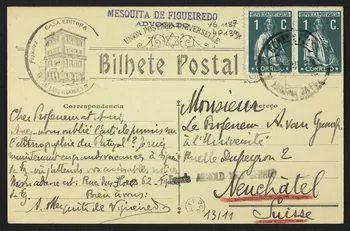 CASA EDITORA
MESQUITA DE FIGUEIREDO
ADVOGADO
UNION POSTALE UNIVERSELLE
Bilhete Postal
1 C CORREIO
1 C CORREIO
Correspondencia
Cher Professeur et Ami,
Avez-vous oublié l'article promis sur
l'Ethnographie du Portugal? Je suis
maintenant en grandes vacances, à Figueira
da Fz, où j'attends vos aimables
Mon adresse est: Rua das Flores 62-Figueira
da Fz.
Bien à vous:
A. Mesquita de Figueiredo
Monsieur
Le Professeur A. van Gennep
à l'Université
Ruelle Dupeyrou 2
Neuchâtel
Suisse
13/11